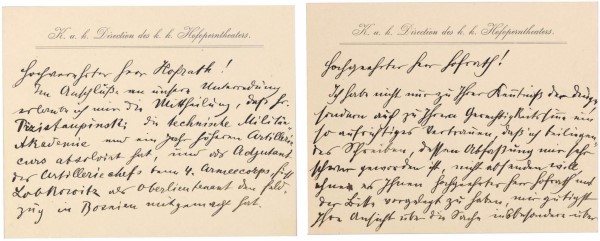 K. u. k. Direction des k. k. Hofoperntheaters.
Hochverehrter Herr Hofrath!
Im Anschluße an unsere Unterredung
erlaube ich mir die Mittheilung, daß Hr.
Przistaupinski die technische Militär-
Akademie und ein Jahr höheren Artillerie
curs absolvirt hat, und als Adjutant
des Artilleriechefs beim 4. Armeecorps Fürst
Lobkowitz als Oberlieutenant den Feld-
zug in Bosnien mitgemacht hat.
K. u. k. Direction des k. k. Hofoperntheaters.
Hochgeehrter Herr Hofrath!
Ich habe nicht nur zu Ihrer Kenntniß der Dinge
sondern auch zu Ihrem Gerechtigkeitssinn ein
so aufrichtiges Vertrauen, daß ich beiliegen-
des Schreiben, dessen Abfassung mir sehr
schwer geworden ist, nicht absenden wollte
ohne es Ihnen Hochgeehrter Herr Hofrath mit
der Bitte vorgelegt zu haben, mir gütigst
Ihre Ansicht über die Sache insbesondere über